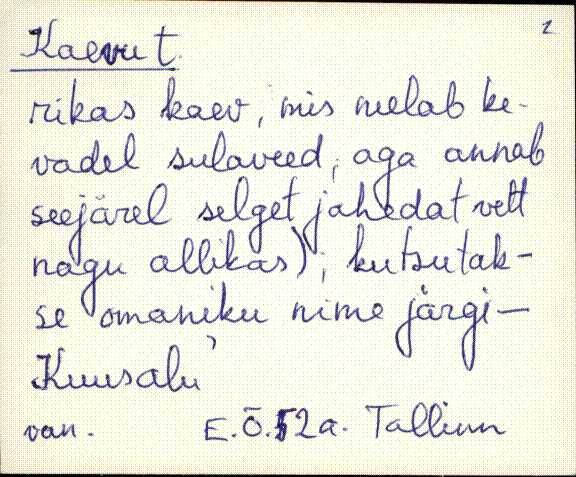 2
Kaevu t.
rikas kaev, mis neelab ke-
vadel sulaveed, aga annab
seejärel selget jahedat vett
nagu allikas); kutsutak-
se omaniku nime järgi —
Kuusalu
van. E.Õ. 52a. Tallinn